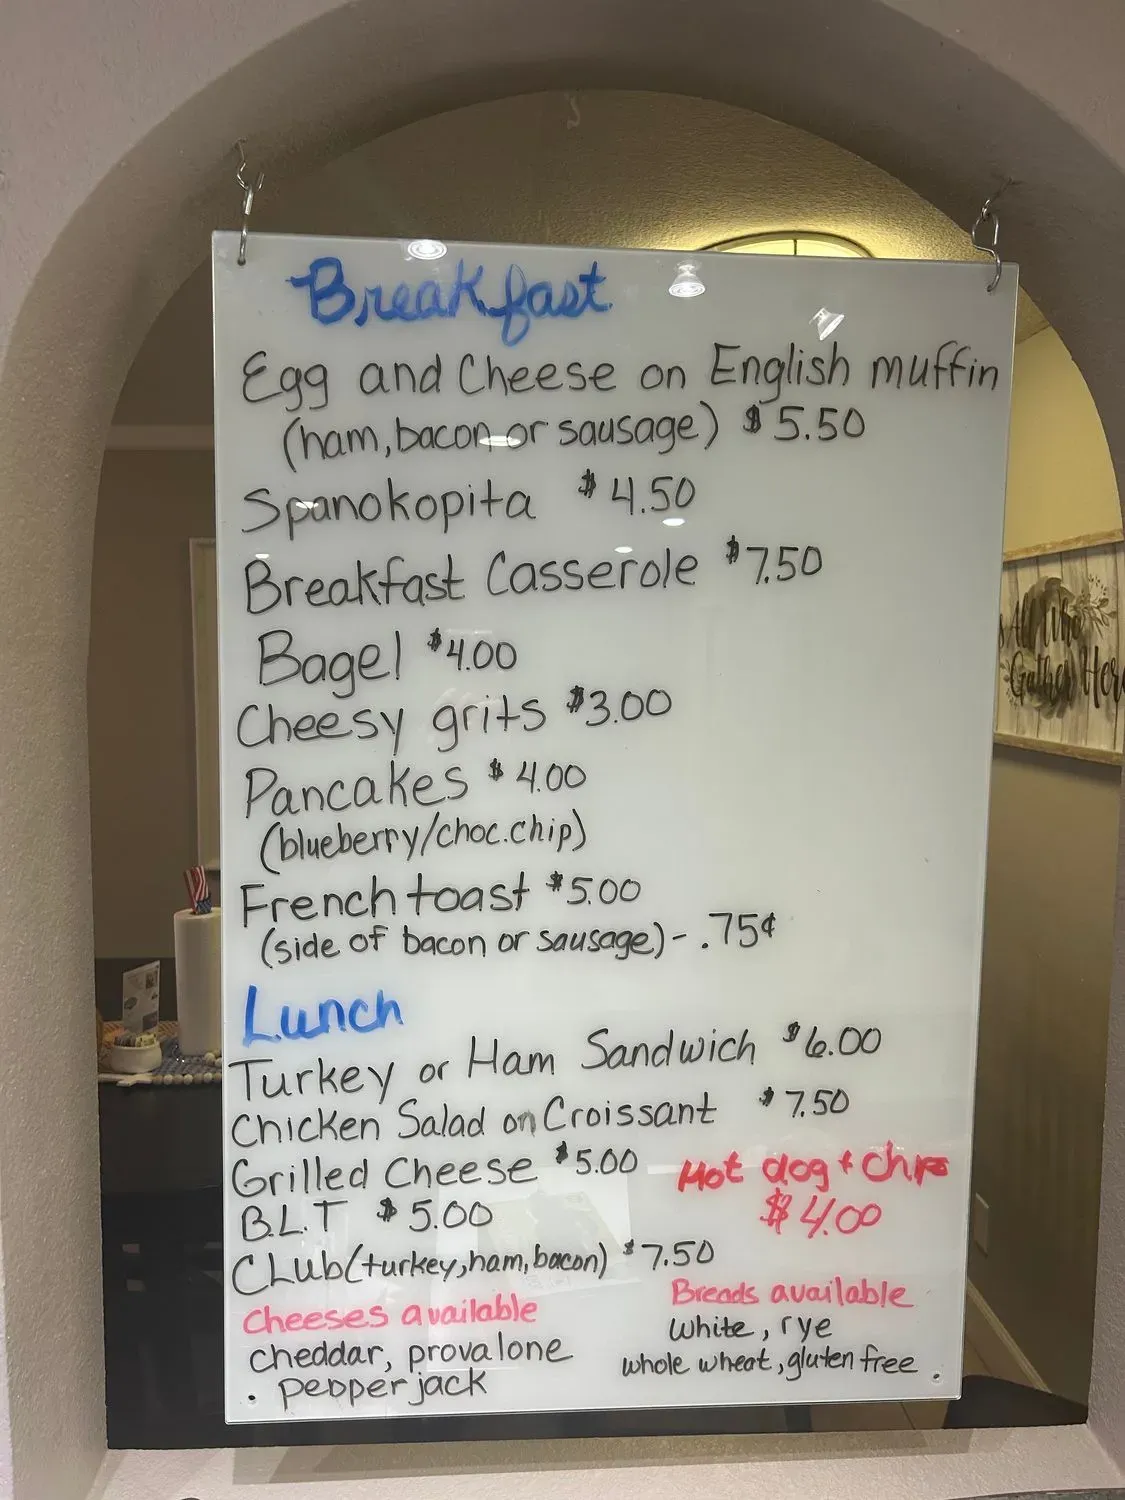 Breakfast
Egg and Cheese on English muffin
(ham, bacon or sausage) $5.50
Spanokopita $4.50
Breakfast Casserole $7.50
Bagel $4.00
Cheesy grits $3.00
Pancakes $4.00
(blueberry/choc.chip)
French toast $5.00
(side of bacon or sausage) - .75¢
Lunch
Turkey or Ham Sandwich $6.00
Chicken Salad on Croissant $7.50
Grilled Cheese $5.00
B.L.T $5.00
Club (turkey, ham, bacon) $7.50
Hot dog + chips
$4.00
Cheeses available
cheddar, provalone
. pepper jack
Breads available
white, rye
whole wheat, gluten free .
All Who
Gather Here